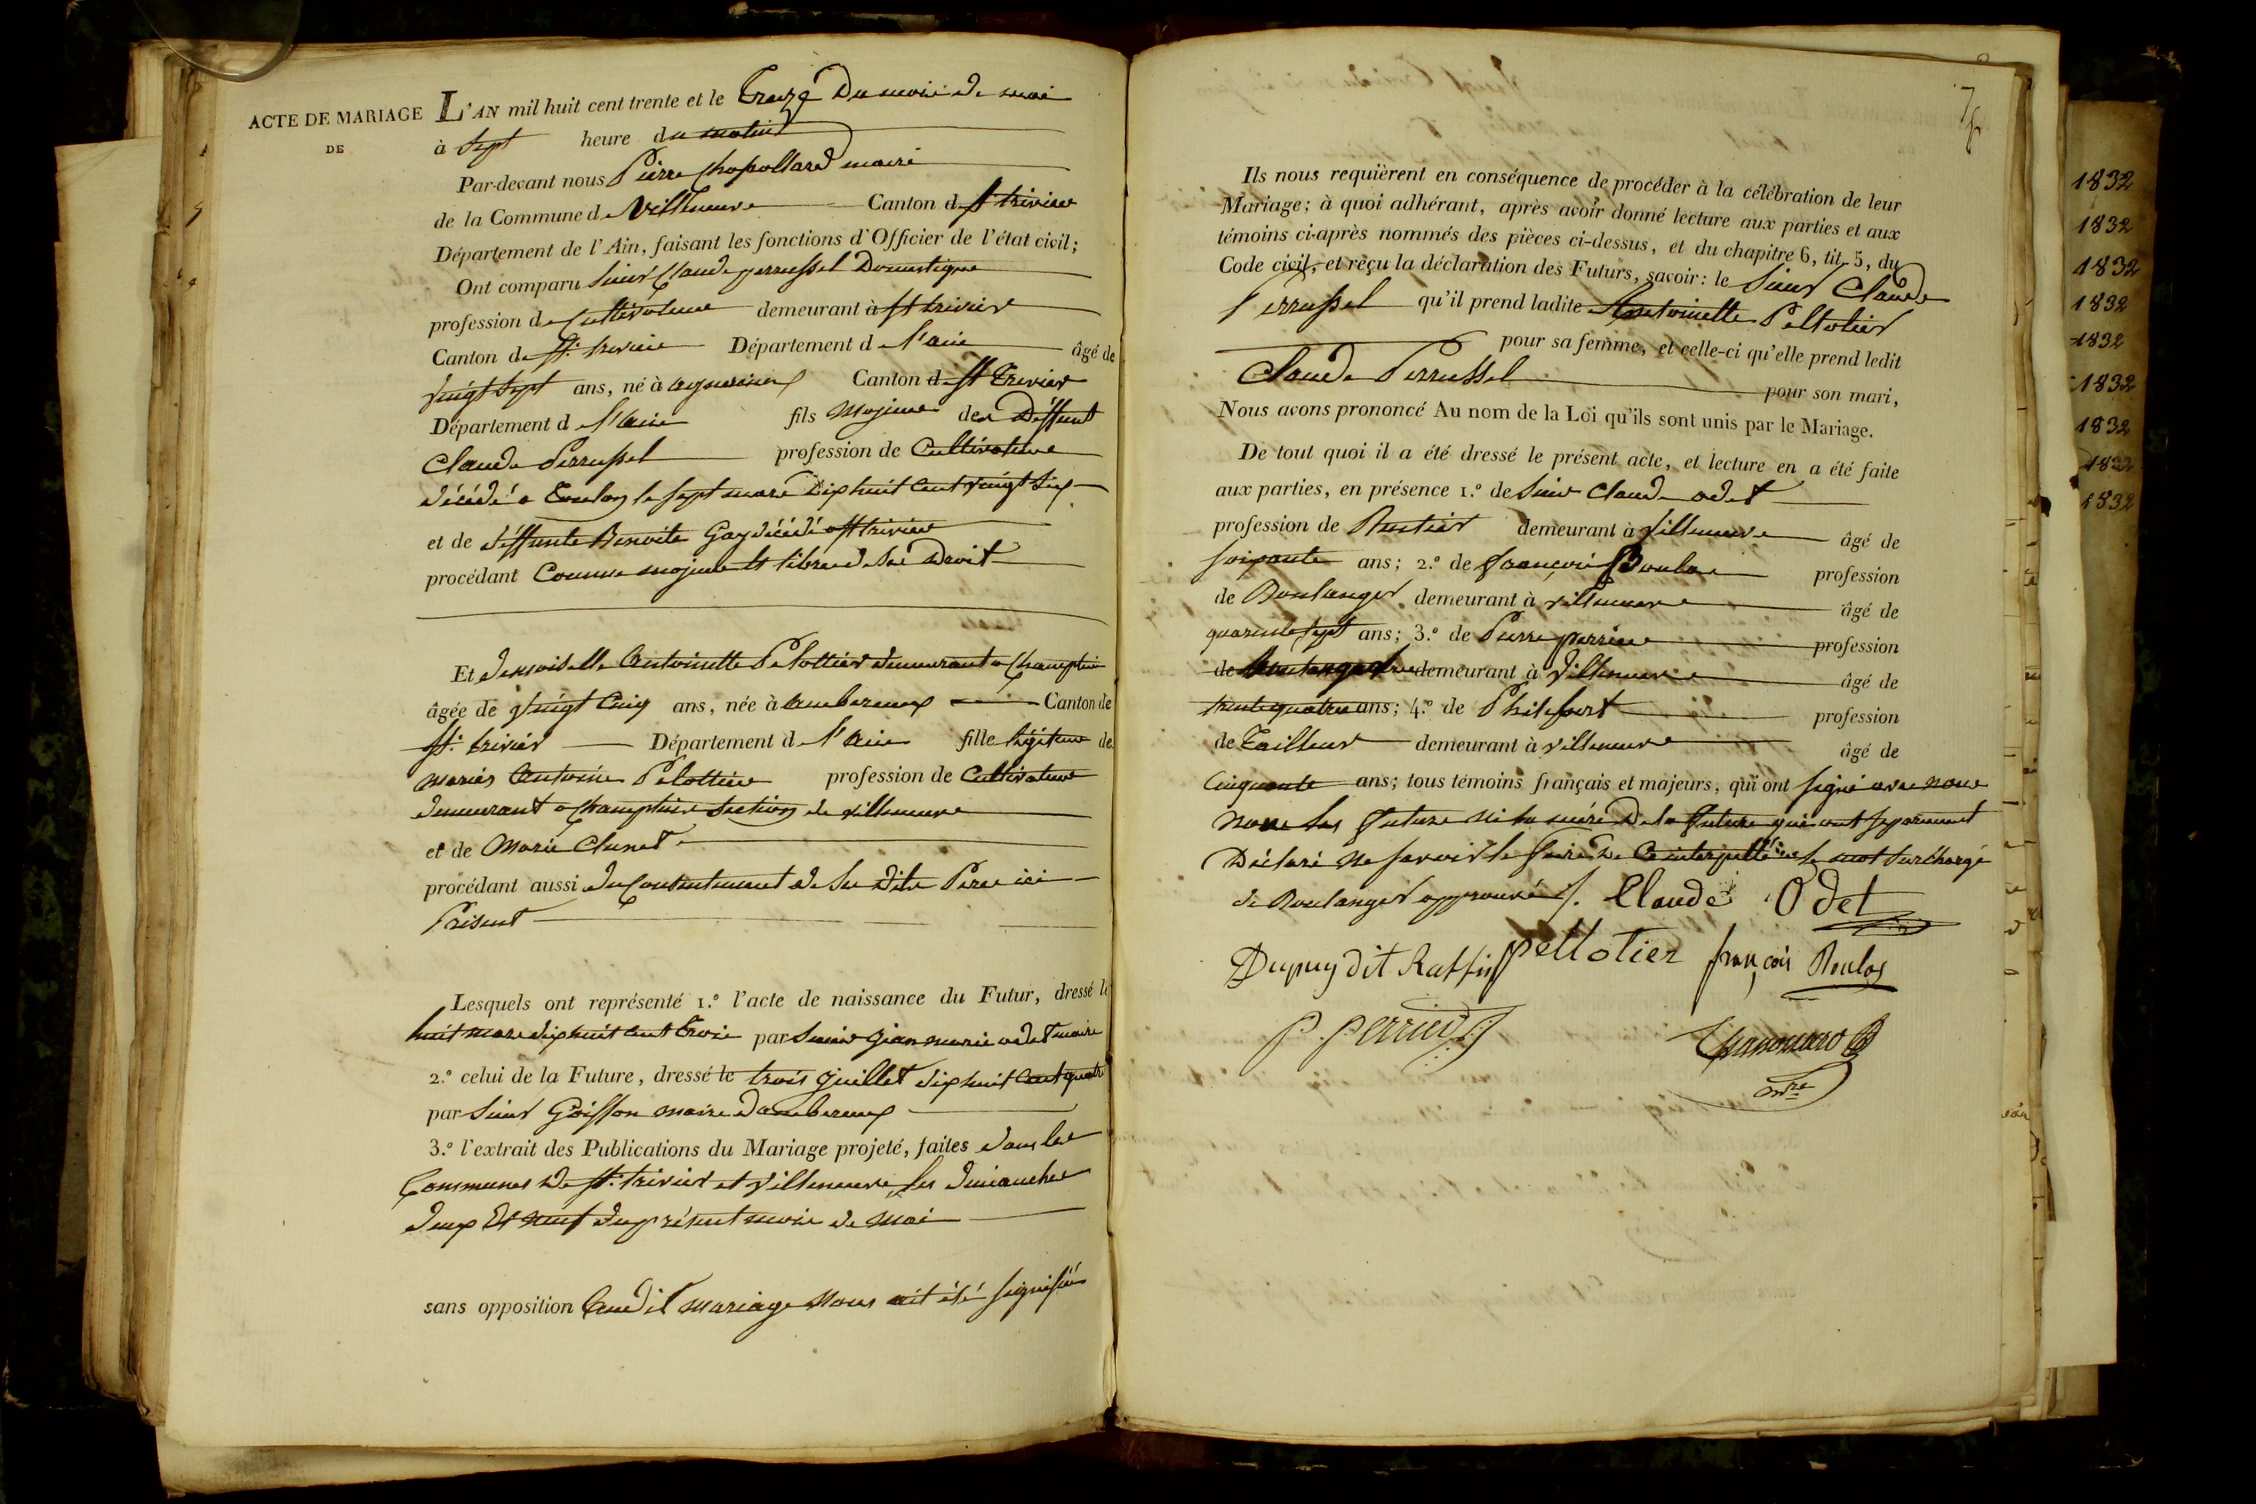 ACTE DE MARIAGE
DE
L'AN mil huit cent trente et le Treize Du mois de mai
à Sept heure du matin
Par-devant nous Pierre Chapollard maire
de la Commune de Villeneuve Canton de St trivier
Département de l'Ain, faisant les fonctions d'Officier de l'état civil;
Ont comparu Sieur Claude perrussel Domestique
profession de Cultivateur demeurant à St trivier
Canton de St. trivier Département de l'ain âgé de
vingt Sept ans, né à Canton de St Trivier
Département de l'ain fils Majeur de Deffunt
Claude Perrussel profession de Cultivateur
décédé a Toulon le Sept mars Dix huit Cent vingt Six
et de deffunte Benoite Gay décédé a St trivier
procédant Comme majeur et libre de Ses Droit
Et demoiselle Antoinette Pelottier demeurant a Champtein
âgée de vingt Cinq ans, née à ambereux Canton de
St. trivier Département de l'Ain fille légitime de
mariés Antoine Pelottier profession de Cultivateur
demeurant a Champtein Section de villeneuve
et de Marie Clunet
procédant aussi du Contentement de Su dite Pere ici
Présent
Lesquels ont représenté 1.º l'acte de naissance du Futur, dressé le
huit mars dix huit cent trois par Sieur jean marie odet maire
2.º celui de la Future, dressé le trois juillet dix huit Cent quatre
par Sieur Goiffon maire d'ambereux
3.º l'extrait des Publications du Mariage projeté, faites dans les
Communes de St. trivier et villeneuve les dimanches
deux Et neuf du présent mois de Mai
sans opposition mariage Nous ait été Signifiée
Ils nous requièrent en conséquence de procéder à la célébration de leur
Mariage; à quoi adhérant, après avoir donné lecture aux parties et aux
témoins ci-après nommés des pièces ci-dessus, et du chapitre 6, tit. 5, du
Code civil, et reçu la déclaration des Futurs, savoir: le Sieur Claude
Perrussel qu'il prend ladite Antoinette Peltotier
pour sa femme, et celle-ci qu'elle prend ledit
Claude Perrussel pour son mari,
Nous avons prononcé Au nom de la Loi qu'ils sont unis par le Mariage.
De tout quoi il a été dressé le présent acte, et lecture en a été faite
aux parties, en présence 1.º de Sieur Claude odet
profession de Rentier demeurant à villeneuve âgé de
Soixante ans; 2.º de françois Boulas profession
de Boulanger demeurant à villeneuve âgé de
quarente Sept ans; 3.º de Pierre perrier profession
de Boulanger demeurant à Villeneuve âgé de
trente quatre ans; 4.º de profession
de Tailleur demeurant à villeneuve âgé de
Cinquante ans; tous témoins français et majeurs, qui ont Signé avec nous
Non les future Ni la mére De la future qui ont Séparement
Déclaré Ne Savoir le faire De Ce interpellé le mot Surchargé
de Boulanger approuvé. Claude Odet
Dupuy dit Raffin pellotier françois Boulas
P. perrier Chapollard
mre
1832
1832
1832
1832
1832
1832
1832
1832
1832